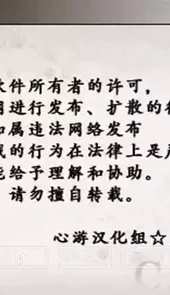 件所有者的许可，
进行发布、扩散的
属违法网络发布
的行为在法律上是
能给予理解和协助。
请勿擅自转载。
心游汉化组☆